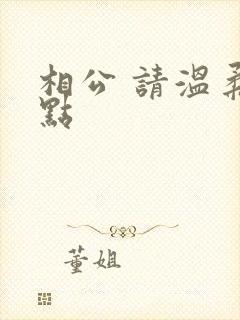 相公 請溫柔
點
董姐